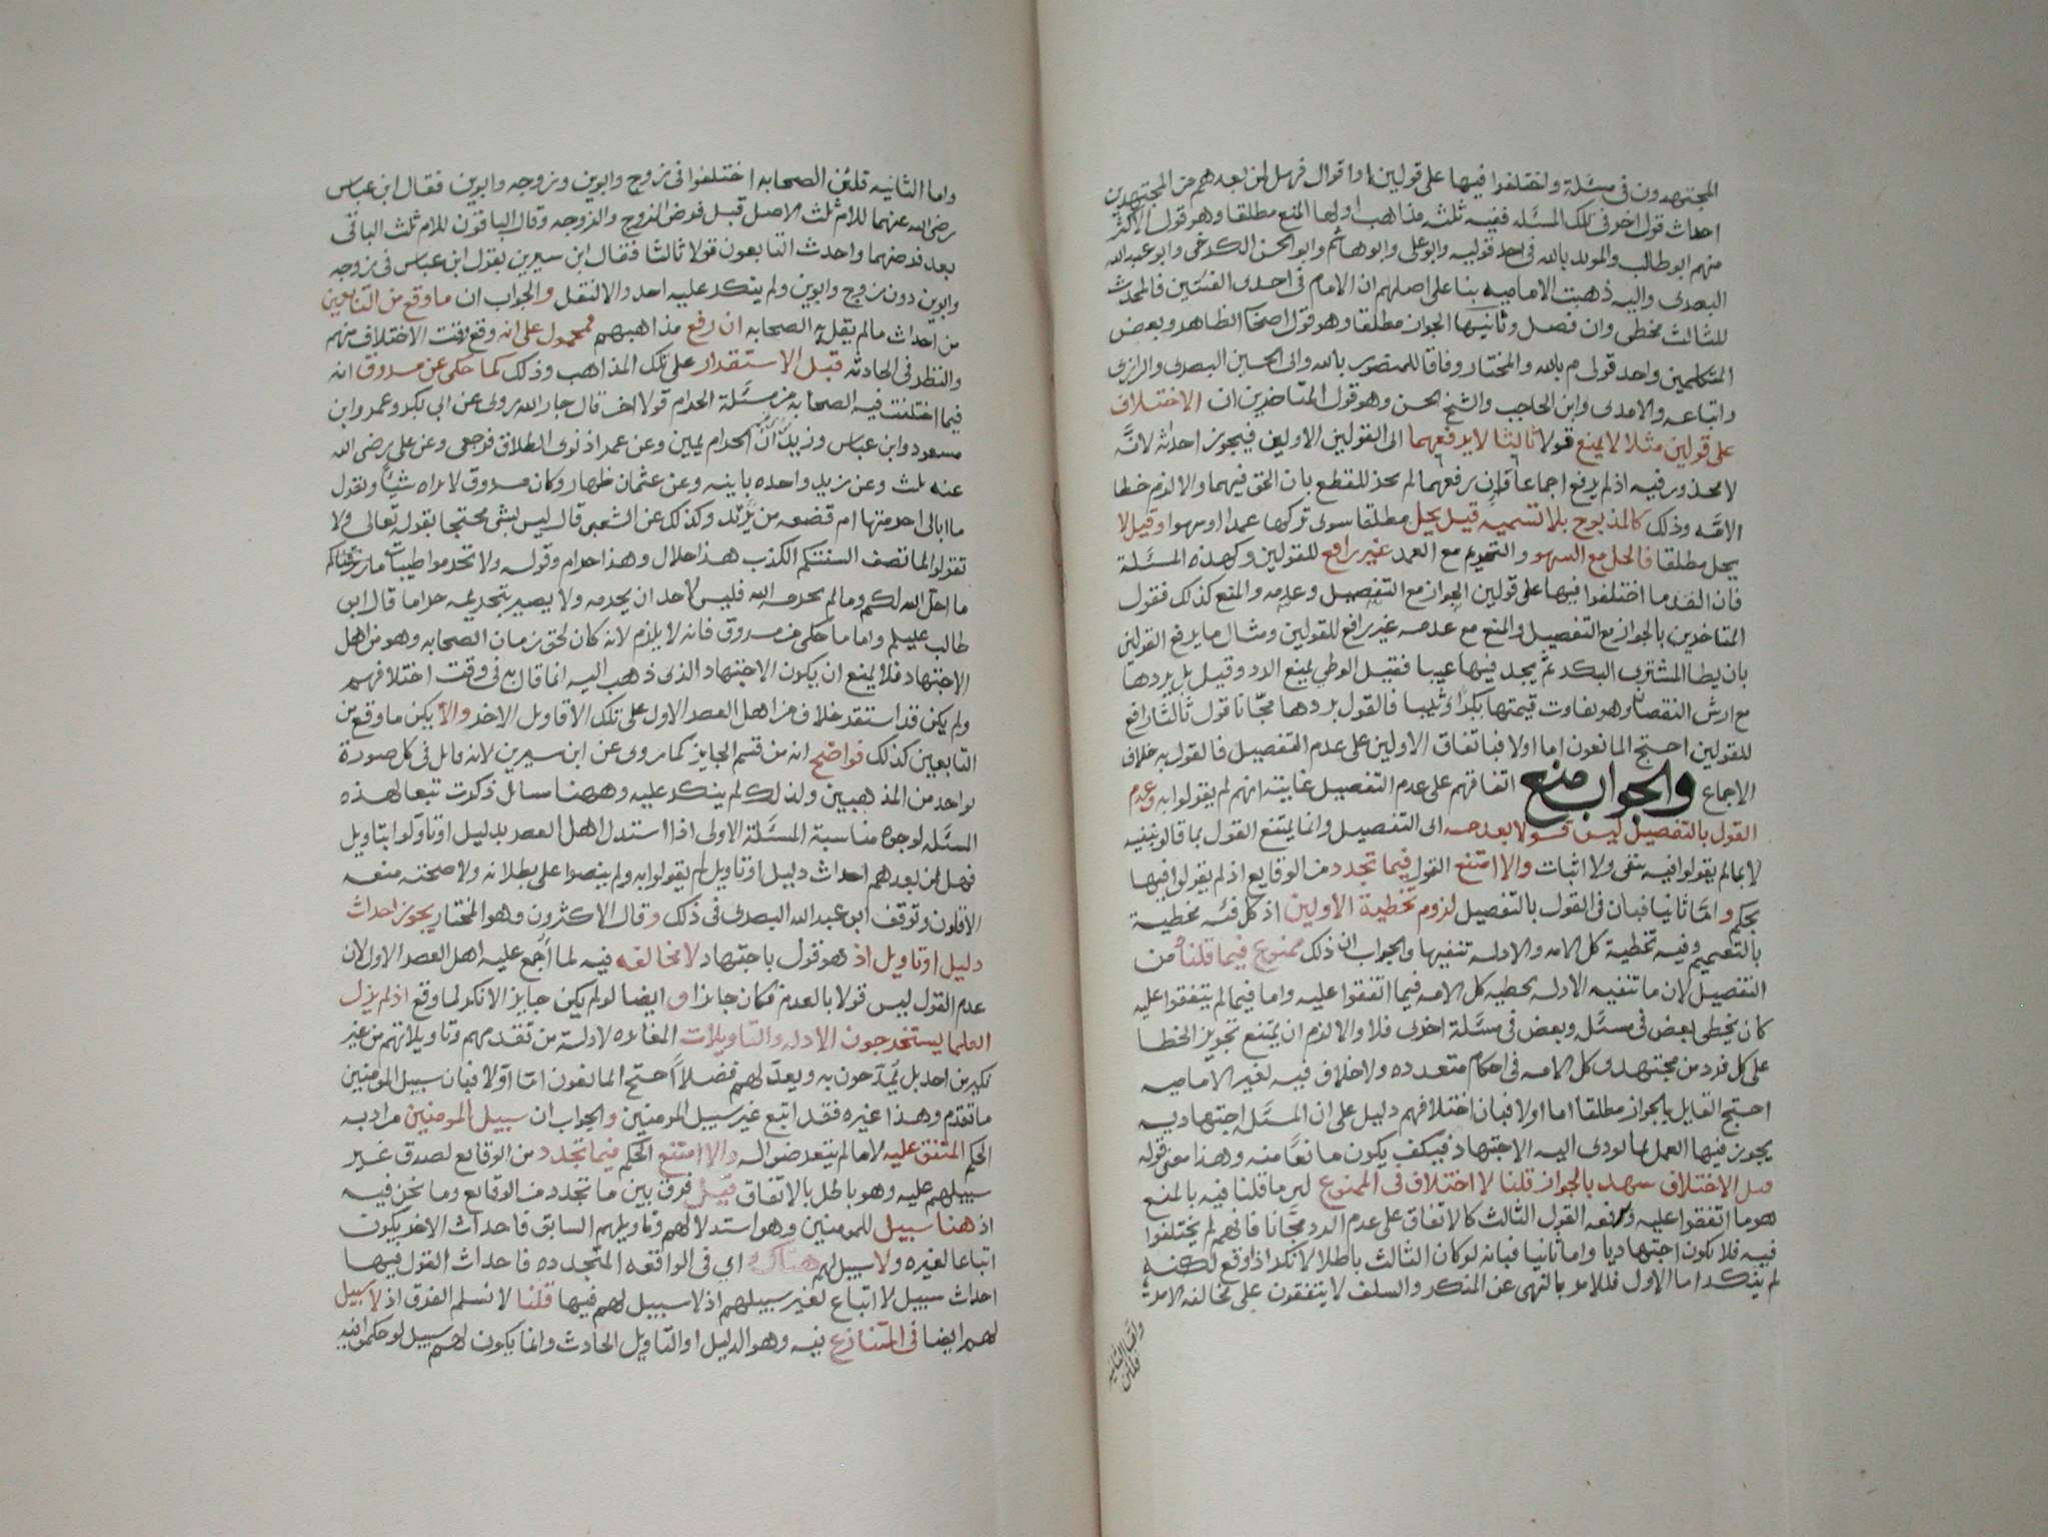 المجتهدون في مسئلة واختلفوا فيها على قولين او اقوال فهل لمن بعدهم من المجتهدين
احداث قول اخر في تلك المسئله ففيه ثلثه مذاهب اولها المنع مطلقا وهو قول الاكثر
منهم ابو طالب والمويد بالله في احد قوليه وابو علي وابو هاشم وابو الحسن الكرخي وابو عبدالله
البصري واليه ذهبت الاماميه بنا على اصلهم ان الامام في احدى الفئتين فالمحدث
للثالث مخطي وان فصل وثانيها الجواز مطلقا وهو قول اصحا الظاهر وبعض
المتكلمين واحد قولي م بالله والمختار وفاقا للمنصور بالله وابي الحسين البصري والرازي
واتباعه والامدي وابن الحاجب والشيخ الحسن وهو قول المتاخرين ان الاختلاف
على قولين مثلا لا يمنع قولا ثالثا لا يرفعهما الى القولين الاولين فيجوز احداثه لانه
لا محذور فيه اذ لم يرفع اجماعا فان رفعهما لم يجز للقطع بان الحق فيهما والا لزم خطا
الامه وذلك كالمذبوح بلا تسميه قيل يحل مطلقا سوى تركها عمدا او سهوا وقيل لا
يحل مطلقا فالحل مع السهو والتحريم مع العمد غير رافع للقولين وكهذه المسئلة
فان القدما اختلفوا فيها على قولين الجواز مع التفصيل وعدمه والمنع كذلك فقول
المتاخرين بالجواز مع التفصيل والمنع مع عدمه غير رافع للقولين ومثال ما يرفع القولين
بان يطا المشتري البكر ثم يجد فيها عيبا فقيل الوطي يمنع الرد وقيل بل يردها
مع ارش النقصان وهو تفاوت قيمتها بكرا وثيبا فالقول بردها مجانا قول ثالث رافع
للقولين احتج المانعون اما اولا فباتفاق الاولين على عدم التفصيل فالقول به خلاف
الاجماع والجواب منع اتفاقهم على عدم التفصيل غايته انهم لم يقولوا به وعدم
القول بالتفصيل ليس قولا بعدمه الى التفصيل وانما يمتنع القول بما قالو بنفيه
لا بما لم يقولوا فيه بنفي ولا اثبات والا امتنع القول فيما تجدد من الوقايع اذ لم يقولوا فيها
بحكم واما ثانيا فبان في القول بالتفصيل لزوم تخطية الاولين اذ كل فئه مخطية
بالتعميم وفيه تخطية كل الامه والادله تنفيها والجواب ان ذلك ممنوع فيما قلنا من
التفصيل لان ما تنفيه الادله تخطيه كل الامه فيما اتفقوا عليه واما فيما لم يتفقوا عليه
كان يخطي بعض في مسئله وبعض في مسئلة اخرى فلا والا لزم ان يمتنع تجويز الخطا
على كل فرد من مجتهدى كل الامه في احكام متعدده ولا خلاف فيه لغير الاماميه
احتج القايل بالجواز مطلقا اما اولا فبان اختلافهم دليل على ان المسئله اجتهاديه
يجوز فيها العمل لما يودي اليه الاجتهاد فكيف يكون مانعا منه وهذا معنى قوله
قيل الاختلاف يشهد بالجواز قلنا لا اختلاف في الممنوع لان ما قلنا فيه بالمنع
هو ما اتفقوا عليه ورفعه القول الثالث كالاتفاق على عدم الرد مجانا فانهم لم يختلفوا
فيه فلا يكون اجتهاديا واما ثانيا فبانه لو كان الثالث باطلا لانكر اذ وقع لكنه
لم ينكر اما الاول فللامر بالنهي عن المنكر والسلف لا يتفقون على مخالفه الامر
واما الثانيه فلئن
واما الثانيه فلئن الصحابه اختلفوا في زوج وابوين وزوجه وابوين فقال ابن عباس
رضي الله عنهما للام ثلث الاصل قبل فرض الزوج والزوجه وقال الباقون للام ثلث الباقي
بعد فرضهما واحدث التابعون قولا ثالثا فقال ابن سيرين بقول ابن عباس في زوجه
وابوين دون زوج وابوين ولم ينكر عليه احد والا لنقل والجواب ان ما وقع من التابعين
من احداث ما لم يقل به الصحابه ان رفع مذاهبهم فمحمول على انه وقع وقت الاختلاف منهم
والنظر في الحادثه قبل الاستقرار على تلك المذاهب وذلك كما حكي عن مسروق انه
فيما اختلفت فيه الصحابه من مسئلة الحرام قولا اخر قال جار الله روي عن ابي بكر وعمر وابن
مسعود وابن عباس وزيد ان الحرام يمين وعن عمر اذ نوى الطلاق فرجعي وعن علي رضي الله
عنه ثلث وعن زيد واحده باينه وعن عثمان ظهار وكان مسروق لا يراه شيا ويقول
ما ابالي احرمتها ام قصعه من ثريد وكذلك عن الشعبي قال ليس بشي محتجا بقوله تعالى ولا
تقولوا لما تصف السنتكم الكذب هذا حلال وهذا حرام وقوله ولا تحرموا طيبات ما رزقناكم
ما احل الله لكم وما لم يحرمه الله فليس لاحد ان يحرمه ولا يصير بتحريمه حراما قال ابو
طالب عليلم واما ما حكي من مسروق فانه لا يلزم لانه كان لحق زمان الصحابه وهو من اهل
الاجتهاد فلا يمنع ان يكون الاجتهاد الذي ذهب اليه انما قال به في وقت اختلافهم
ولم يكن قد استقر خلاف من اهل العصر الاول على تلك الاقاويل الاخر والا يكن ما وقع من
التابعين كذلك فواضح انه من قسم الجايز كما روي عن ابن سيرين لانه قايل في كل صورة
بواحد من المذهبين ولذلك لم ينكر عليه وههنا مسائل ذكرت تبعا لهذه
المسئله لوجوه مناسبة المسئلة الاولى اذا استدل اهل العصر بدليل او تاولوا بتاويل
فهل لمن بعدهم احداث دليل او تاويل لم يقولوا به ولم ينصوا على بطلانه ولا صحته منعه
الاقلون وتوقف ابو عبد الله البصري في ذلك وقال الاكثرون وهو المختار يجوز احداث
دليل او تاويل اذ هو قول باجتهاد لا مخالفه فيه لما اجمع عليه اهل العصر الاول لان
عدم القول ليس قولا بالعدم فكان جايزا و ايضا لو لم يكن جايز الانكر لما وقع اذ لم يزل
العلما يستخرجون الادله والتاويلات المغايره لادلة من تقدمهم وتاويلاتهم من غير
نكير من احد بل يمدحون به ويعد لهم فضلا احتج المانعون اما اولا فبان سبيل المومنين
ما تقدم وهذا غيره فقد اتبع غير سبيل المومنين والجواب ان سبيل المومنين مراد به
الحكم المتفق عليه لا ما لم يتعرضوا له والا امتنع الحكم فيما تجدد من الوقايع لصدق غير
سبيلهم عليه وهو باطل بالاتفاق قيل فرق بين ما تجدد من الوقايع وما نحن فيه
اذ هنا سبيل للمومنين وهو استدلالهم وتاويلهم السابق فاحداث الاخر يكون
اتباعا لغيره ولا سبيل لهم هناك اي في الواقعه المتجدده فاحداث القول فيها
احداث سبيل لا اتباع لغير سبيلهم اذ لا سبيل لهم فيها قلنا لا نسلم الفرق اذ لا سبيل
لهم ايضا في المتنازع فيه وهو الدليل او التاويل الحادث وانما يكون لهم سبيل لو حكموا فيه